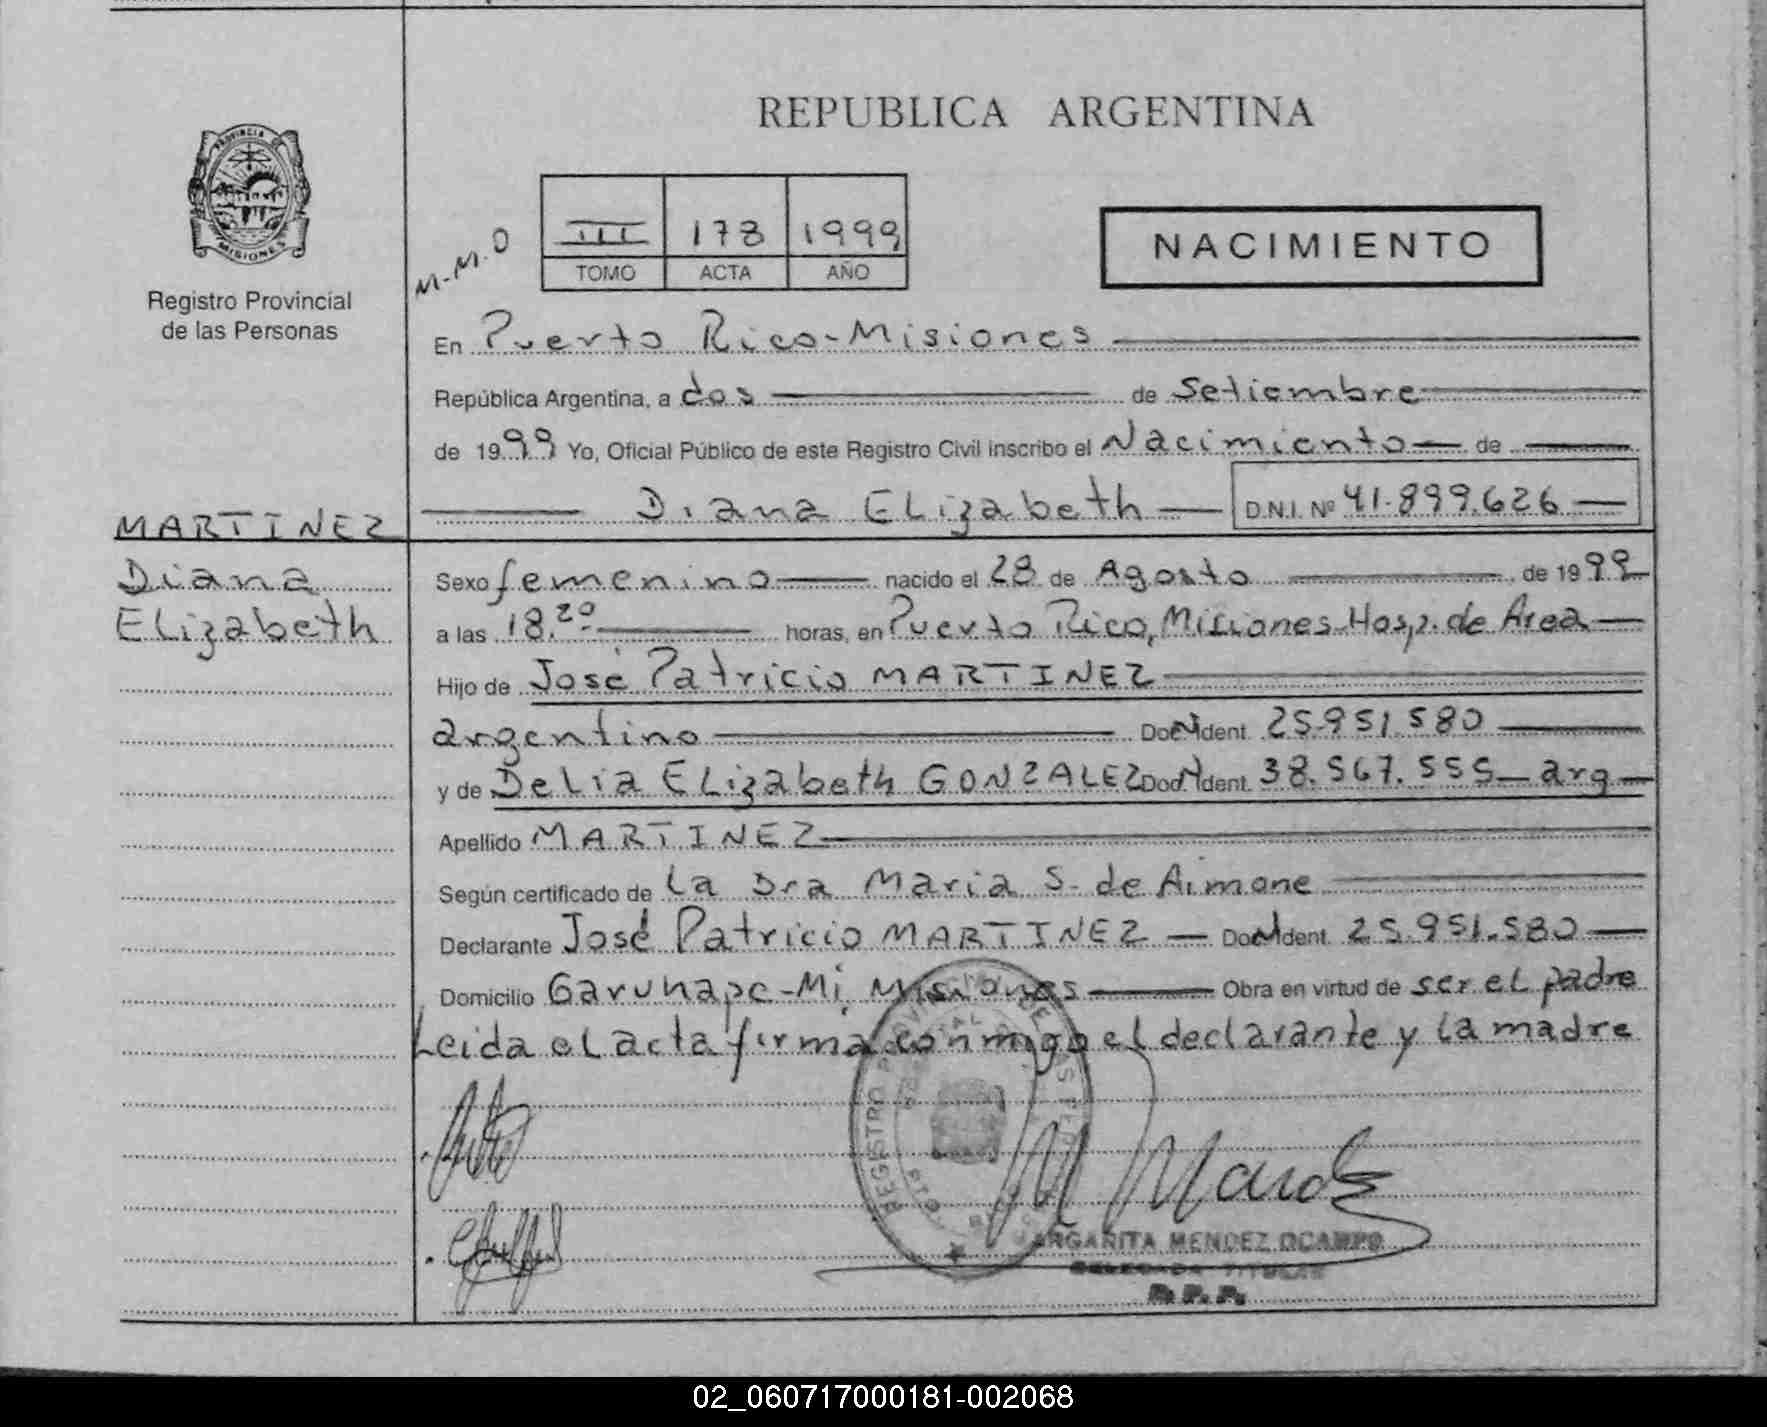 REPUBLICA ARGENTINA
PROVINCIA
MISIONES
Registro Provincial
de las Personas
M.M.O
III 178 1999
TOMO ACTA AÑO
NACIMIENTO
En Puerto Rico-Misiones
República Argentina, a dos de Setiembre
de 1999 Yo, Oficial Público de este Registro Civil inscribo el Nacimiento de
Diana ELizabeth D.N.I. Nº 41.899.626
MARTINEZ
Diana
ELizabeth
Sexo femenino nacido el 28 de Agosto de 1999
a las 18.20 horas, en Puerto Rico, Misiones-Hosp. de Area
Hijo de José Patricio MARTINEZ
argentino Doc. Ident. 25.951.580
y de DeLia ELizabeth GONZALEZ Doc. Ident. 38.567.555 arg
Apellido MARTINEZ
Según certificado de La Dra Maria S. de Aimone
Declarante José Patricio MARTINEZ Doc. Ident. 25.951.580
Domicilio Garuhape-Mi Misiones Obra en virtud de ser el padre
Leida el acta firma conmigo el declarante y la madre
REGISTRO PROVINCIAL DE LAS
MARGARITA MENDEZ OCAMPO
DELEGADA TITULAR
R.P.P.
02_060717000181-002068